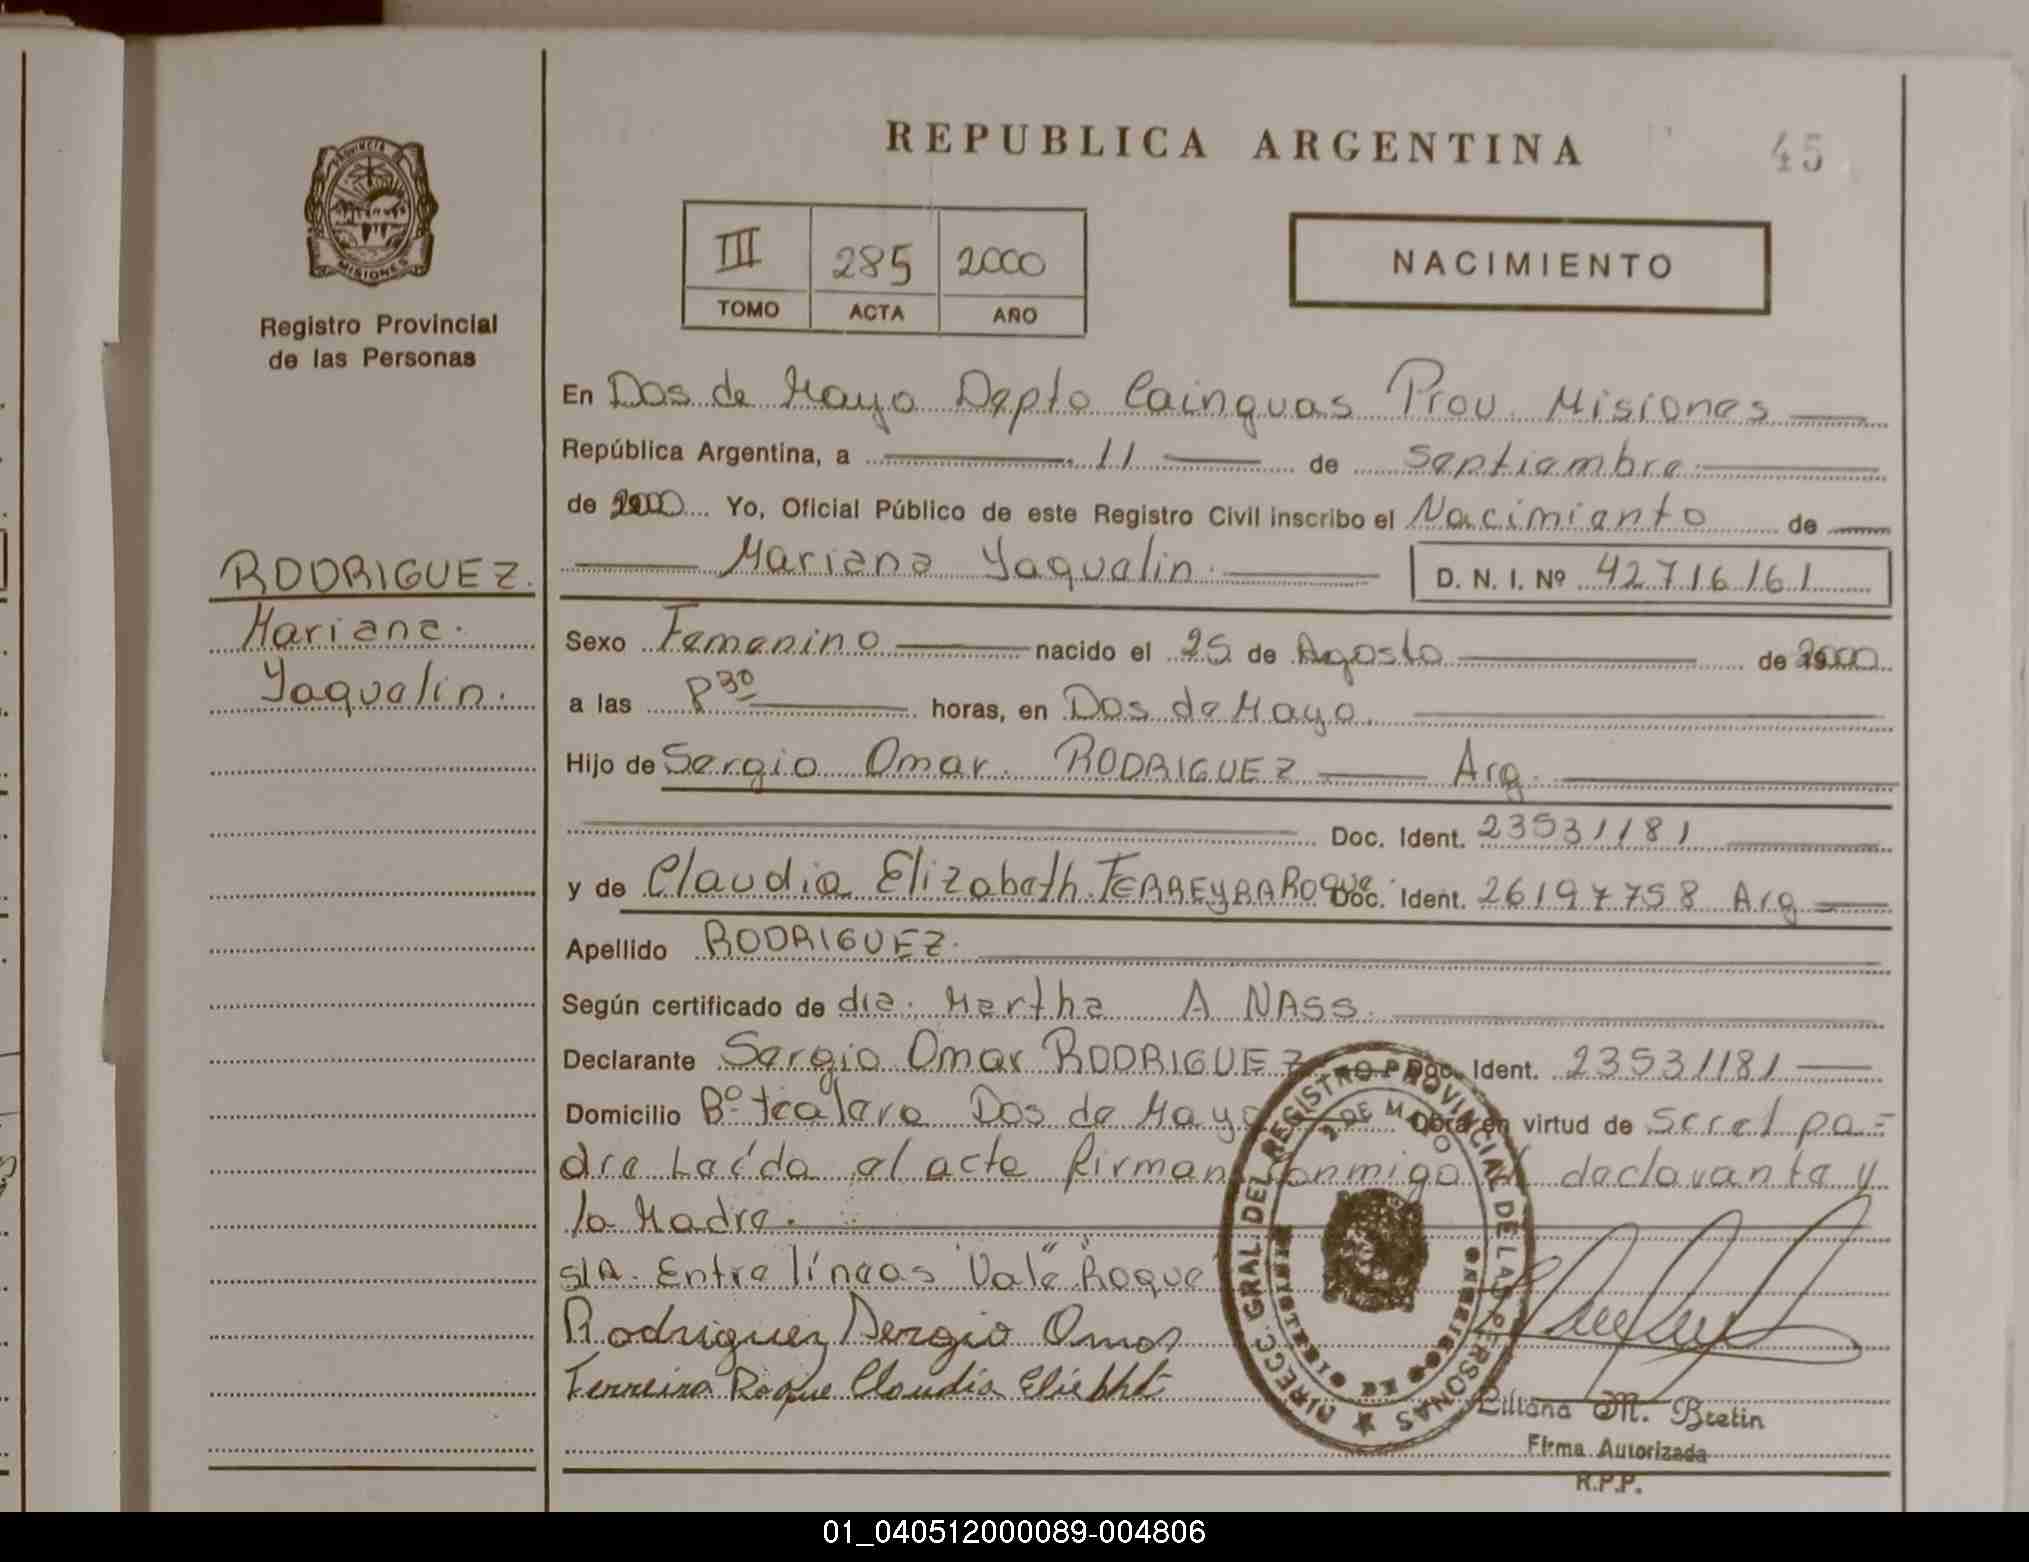 REPUBLICA ARGENTINA
45
PROVINCIA
MISIONES
Registro Provincial
de las Personas
III 285 2000
TOMO ACTA AÑO
NACIMIENTO
En Dos de Mayo Depto Cainguas Prov. Misiones
República Argentina, a 11 de Septiembre
de 2000 Yo, Oficial Público de este Registro Civil inscribo el Nacimiento de
Mariana Yaquelin. D. N. I. Nº 42716161
RODRIGUEZ.
Mariana.
Yaquelin.
Sexo Femenino nacido el 25 de Agosto de 2000
a las 8 30 horas, en Dos de Mayo.
Hijo de Sergio Omar RODRIGUEZ Arg.
Doc. Ident. 23531181
y de Claudia Elizabeth FERREYRA ROque Doc. Ident. 26197758 Arg
Apellido RODRIGUEZ.
Según certificado de dra. Martha A NASS.
Declarante Sergio Omar RODRIGUEZ Doc. Ident. 23531181
Domicilio Bº tealero Dos de Mayo Obra en virtud de ser el pa=
dre Leída el acta firman conmigo el declarante y
la Madre.
S/R. Entre líneas "Vale" Roque
Rodriguez Sergio Omar
Ferreira Roque Claudia
DIRECC. GRAL. DEL REGISTRO PROVINCIAL DE LAS PERSONAS
2 DE MAYO
Liliana M. Bretin
Firma Autorizada
R.P.P.
01_040512000089-004806